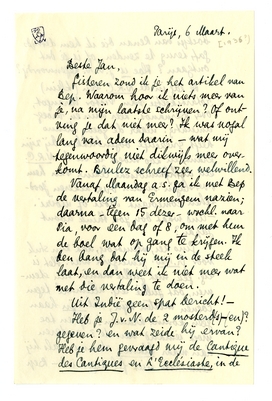 Parijs, 6 Maart.
[1936]
Beste Jan,
Gisteren zond ik je het artikel van
Bep. Waarom hoor ik niets meer van
je, na mijn laatste schrijven? Of ont-
ving je dat niet meer? Ik was nogal
lang van adem daarin — wat mij
tegenwoordig niet dikwijls meer over-
komt. Brulez schreef zeer welwillend.
Vanaf Maandag a.s. ga ik met Bep
de vertaling van Ermengem nazien;
daarna - tegen 15 dezer - wschl. naar
Pia, voor een dag of 8, om met hem
de boel wat op gang te krijgen. Ik
ben bang dat hij mij in de steek
laat, en dan weet ik niet meer wat
met die vertaling te doen.
Uit Indië geen spat bericht! —
Heb je J.v.N. de 2 mosterdp(-en)?
gegeven? en wat zeide hij ervan?
Heb je hem gevraagd mij de Cantique
des Cantiques en L'Ecclésiaste, in de